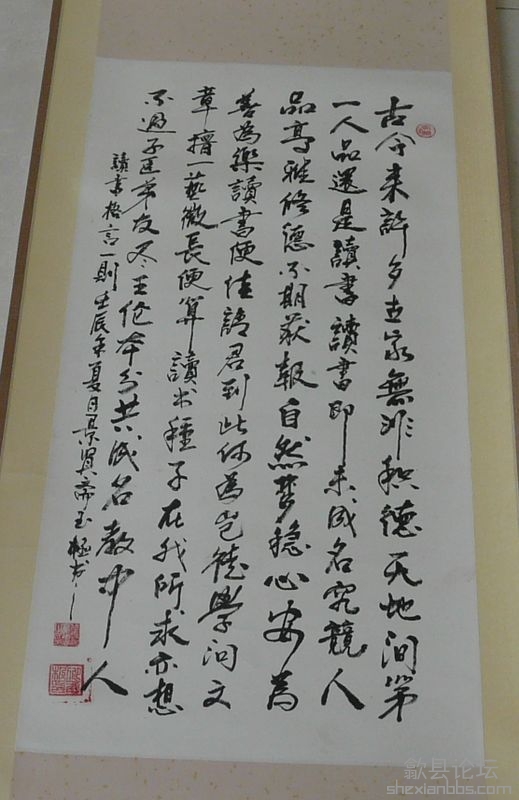 古今来許多世家無非积德天地间第
一人品還是讀書讀書即未成名究竟人
品高雅修德不期获報自然梦稳心安為
善為樂讀書便佳請君到此何為豈徒學问文
章擅一藝微長便算讀书種子在我所求亦想
不過子臣弟友尽五伦本分共成名教中人
讀書格言一則壬辰年夏月景賢斋玉
歙县论坛
shexianbbs.com